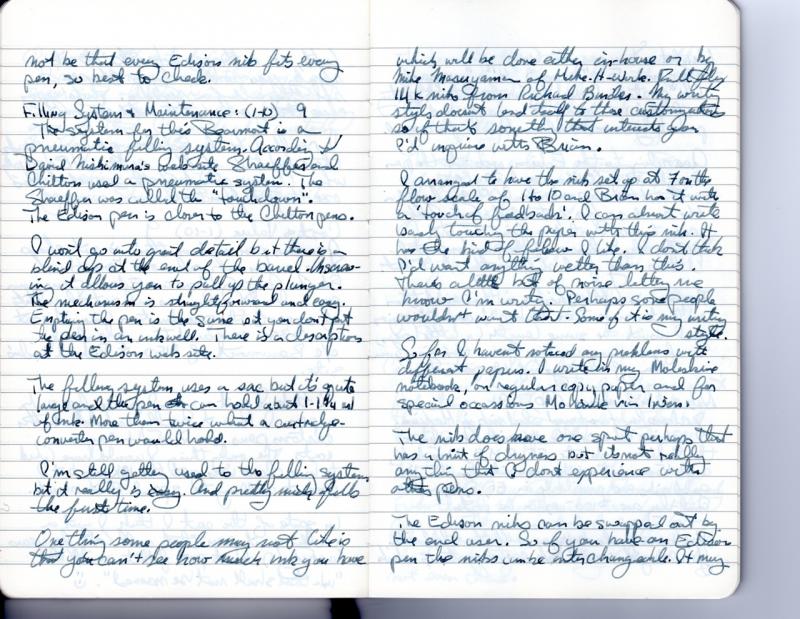 not be that every Edison nib fits every
pen, so best to check.
Filling System & Maintenance: (1-10) 9
The system for this Beaumont is a
pneumatic filling system. According to
David Nishimura's website Sheaffer and
Chilton used a pneumatic system. The
Sheaffer was called the "touchdown".
The Edison pen is closer to the Chilton pens.
I won't go into great detail but there is a
blind cap at the end of the barrel. Unscrew-
ing it allows you to pull up the plunger.
The mechanism is straightforward and easy.
Emptying the pen is the same but you don't put
the pen in an inkwell. There is a description
at the Edison web site.
The filling system uses a sac but it's quite
large and the pen can hold about 1-1¼ ml
of ink. More than twice what a cartridge-
converter pen would hold.
I'm still getting used to the filling system
but it really is easy. And pretty much fills
the first time.
One thing some people may not like is
that you can't see how much ink you have
which will be done either in-house or by
Mike Masuyama of Mike-It-Work.
14 k nibs from Richard Binder. My writing
style doesn't lend itself to those
so if that's something that interests you
I'd inquire with Brian.
I arranged to have the nib set up at 7 on the
flow scale of 1 to 10 and Brian has it with
a 'touch of feedback'. I can almost write
barely touching the paper with this nib. It
has the kind of flow I like. I don't think
I'd want anything wetter than this.
There's a little bit of noise letting me
know I'm writing. Perhaps some people
wouldn't want that. Some of it is my writing
style.
So far I haven't noticed any problems with
different papers. I write in my Moleskine
notebook, on regular copy paper and for
special occasions
The nib does have one spot perhaps that
has a hint of dryness but its not really
anything that I don't experience with
other pens.
The Edison nibs can be swapped out by
the end user. So if you have an Edison
pen the nibs can be interchangeable. It may